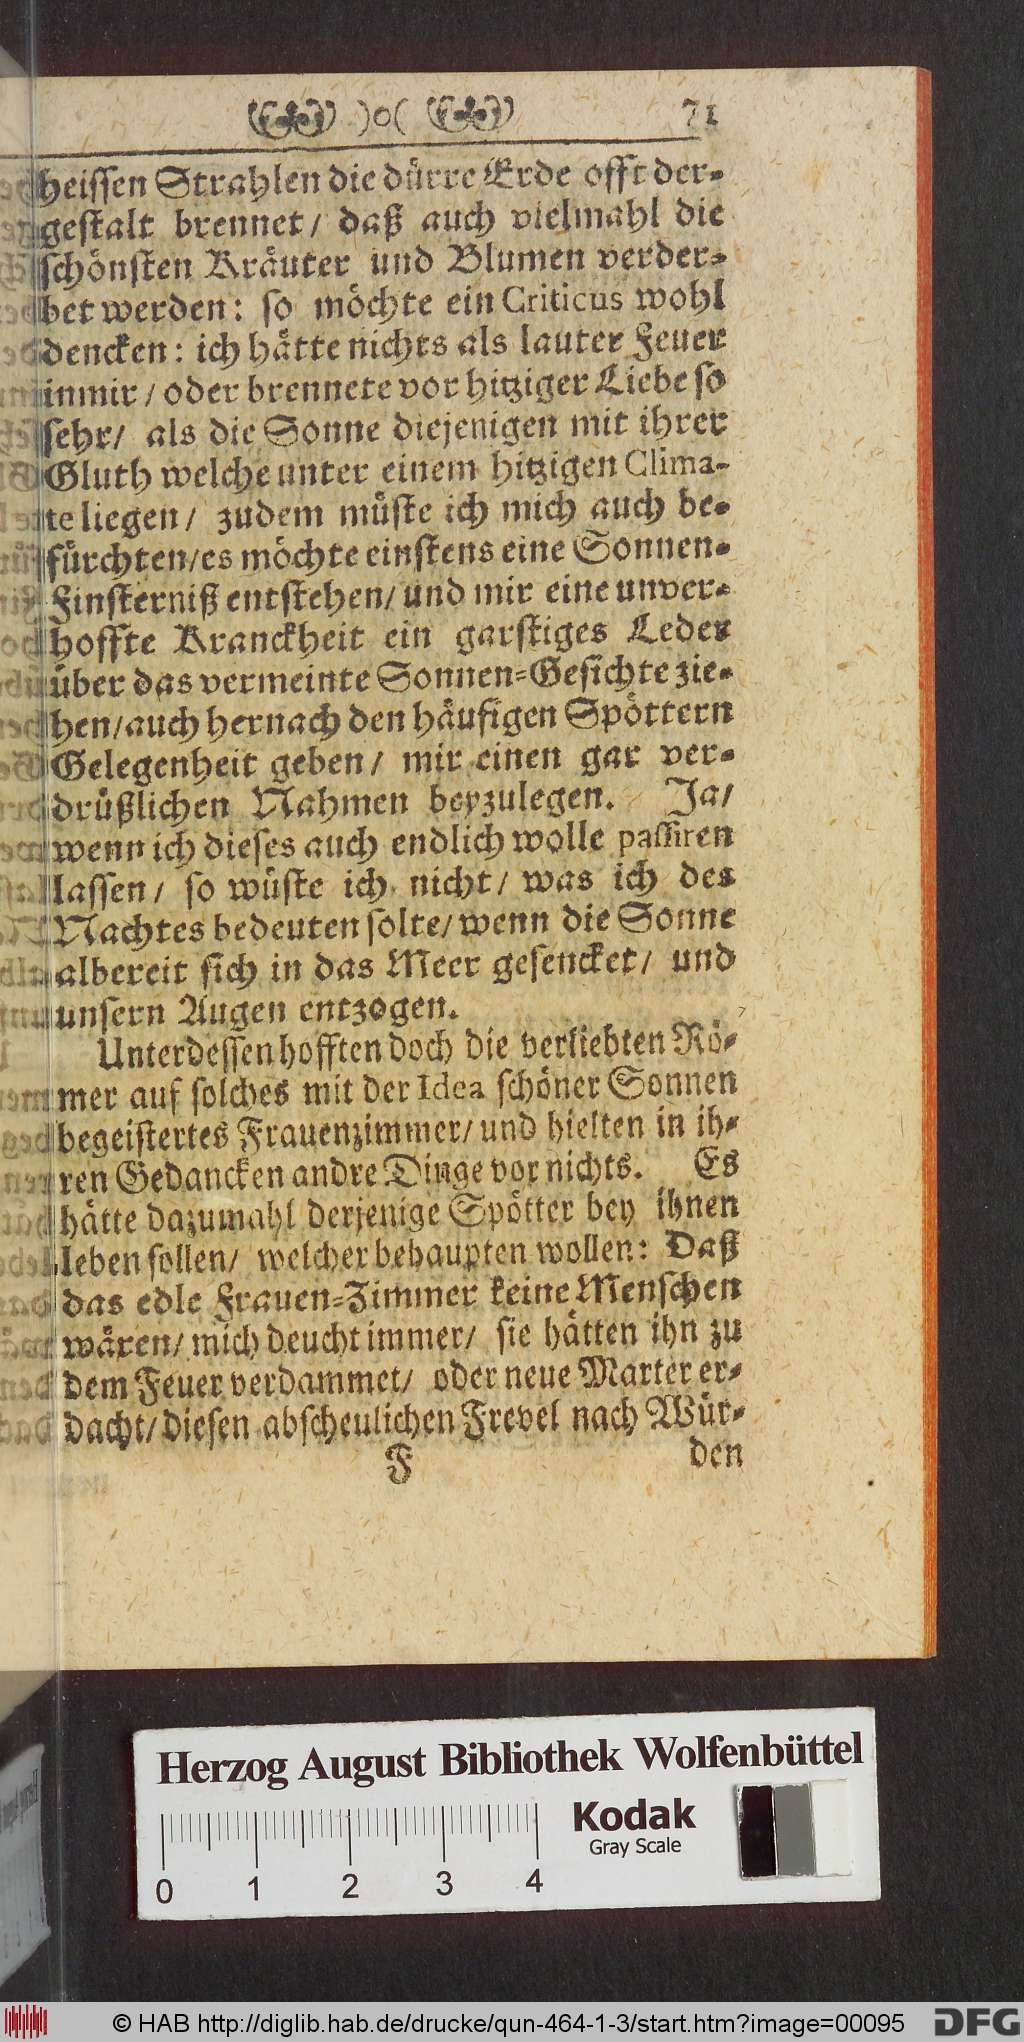 )o( 71
heissen Strahlen die dürre Erde offt der-
gestalt brennet/ daß auch vielmahl die
schönsten Kräuter und Blumen verder-
bet werden: so möchte ein Criticus wohl
dencken: ich hätte nichts als lauter Feuer
in mir/ oder brennete vor hitziger Liebe so
sehr/ als die Sonne diejenigen mit ihrer
Gluth welche unter einem hitzigen Clima-
te liegen/ zudem müste ich mich auch be-
fürchten/ es möchte einstens eine Sonnen-
Finsterniß entstehen/ und mir eine unver-
hoffte Kranckheit ein garstiges Leder
über das vermeinte Sonnen-Gesichte zie-
hen/ auch hernach den häufigen Spöttern
Gelegenheit geben/ mir einen gar ver-
drüßlichen Nahmen beyzulegen. Ja/
wenn ich dieses auch endlich wolle passiren
lassen/ so wüste ich nicht/ was ich des
Nachtes bedeuten solte/ wenn die Sonne
albereit sich in das Meer gesencket/ und
unsern Augen entzogen.
Unterdessen hofften doch die verliebten Rö-
mer auf solches mit der Idea schöner Sonnen
begeistertes Frauenzimmer/ und hielten in ih-
ren Gedancken andre Dinge vor nichts. Es
hätte dazumahl derjenige Spötter bey ihnen
leben sollen/ welcher behaupten wollen: Daß
das edle Frauen-Zimmer keine Menschen
wären/ mich deucht immer/ sie hätten ihn zu
dem Feuer verdammet/ oder neue Marter er-
dacht/ diesen abscheulichen Frevel nach Wür-
F den
Herzog August Bibliothek Wolfenbüttel
Kodak
Gray Scale
0 1 2 3 4
© HAB http://diglib.hab.de/drucke/qun-464-1-3/start.htm?image=00095 DFG